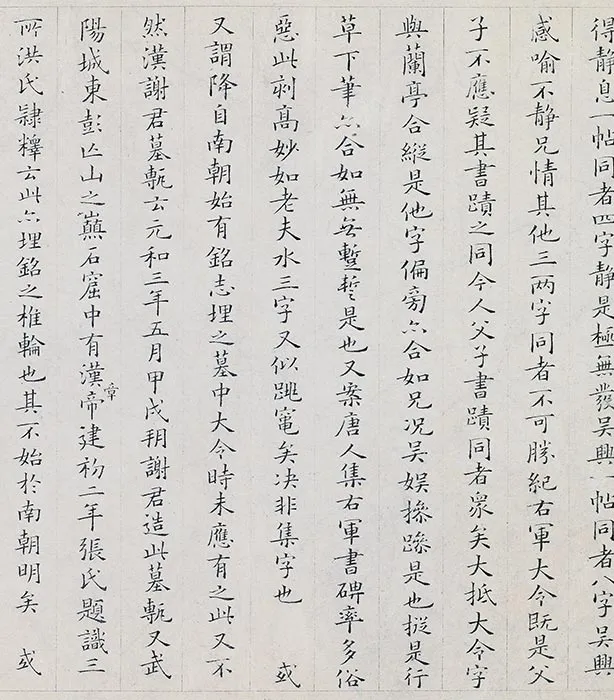 得静息一帖同者四字静是極無發吴興一帖同者八字吴興
感喻不静兄情其他三两字同者不可勝紀右軍大令既是父
子不應疑其書蹟之同今人父子書蹟同者衆矣大抵大令字
與蘭亭合縱是他字偏旁亦合如兄况吴娱是也是行
草下筆亦合如無暫誓是也又案唐人集右軍書碑率多俗
惡此刻高妙如老夫水三字又似跳竃矣决非集字也 或
又謂降自南朝始有銘志埋之墓中大令時未應有之此又不
然漢謝君墓甎云元和三年五月甲戌朔謝君造此墓甎又武
陽城東彭亡山之巔石窟中有漢章帝建初二年張氏題識三
所洪氏隸釋云此亦埋銘之椎輪也其不始於南朝明矣 或